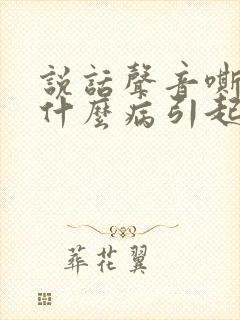 說話聲音嘶
什麼病引起
葬花翼